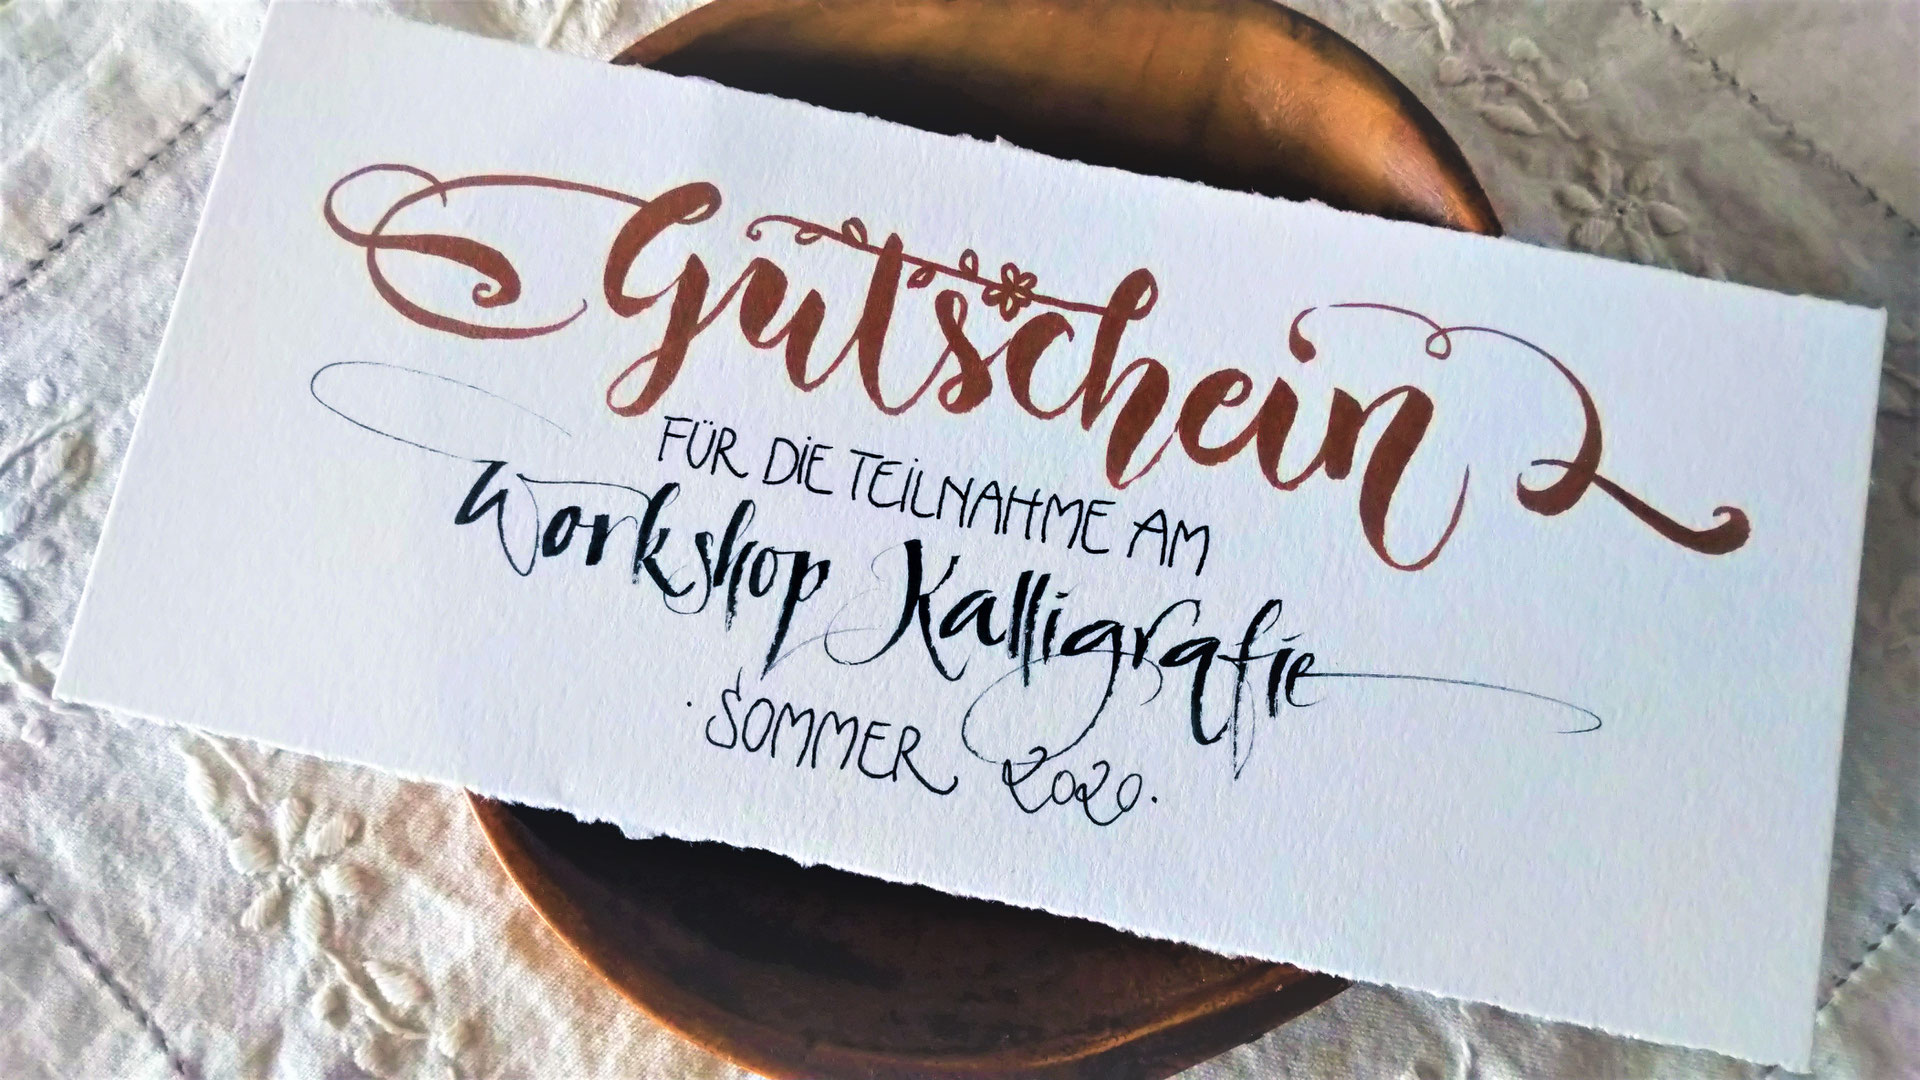 Gutschein
FÜR DIE TEILNAHME AM
Workshop Kalligrafie
· SOMMER 2020.